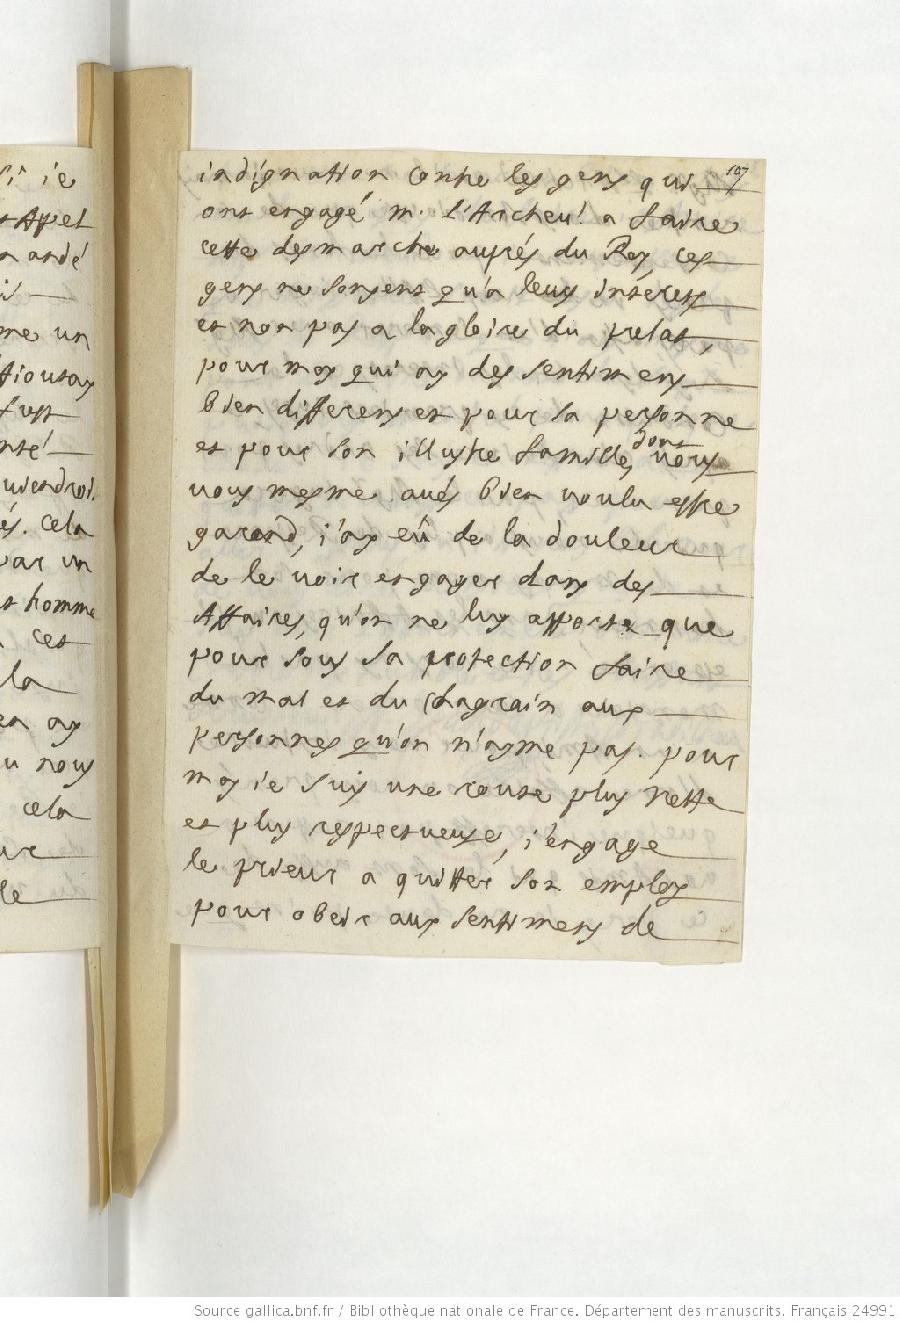 si ie
Appel
mandé
me un
fust
uiendroit
és. cela
par un
homme
ces
la
en ay
u nous
cela
ur
le
107
indignation contre les gens qui
ont engagé m. l'Archeu. a faire
cette desmarche auprés du Roy, ces
gens ne songent qu'a leurs interests
et non pas a la gloire du prelat,
pour moy qui ay des sentimens
bien differens et pour sa personne
et pour son illustre famille, dont vous
vous mesme aués bien voulu estre
garand, i'ay eû de la douleur
de le voir engager dans des
Affaires, qu'on ne luy apporte que
pour sous sa protection faire
du mal et du chagrain aux
personnes qu'on n'ayme pas. pour
moy ie suis une route plus nette
et plus respectueuse, i'engage
le prieur a quitter son employ
pour obeir aux sentimens de
Source gallica.bnf.fr / Bibliothèque nationale de France. Département des manuscrits. Français 24991